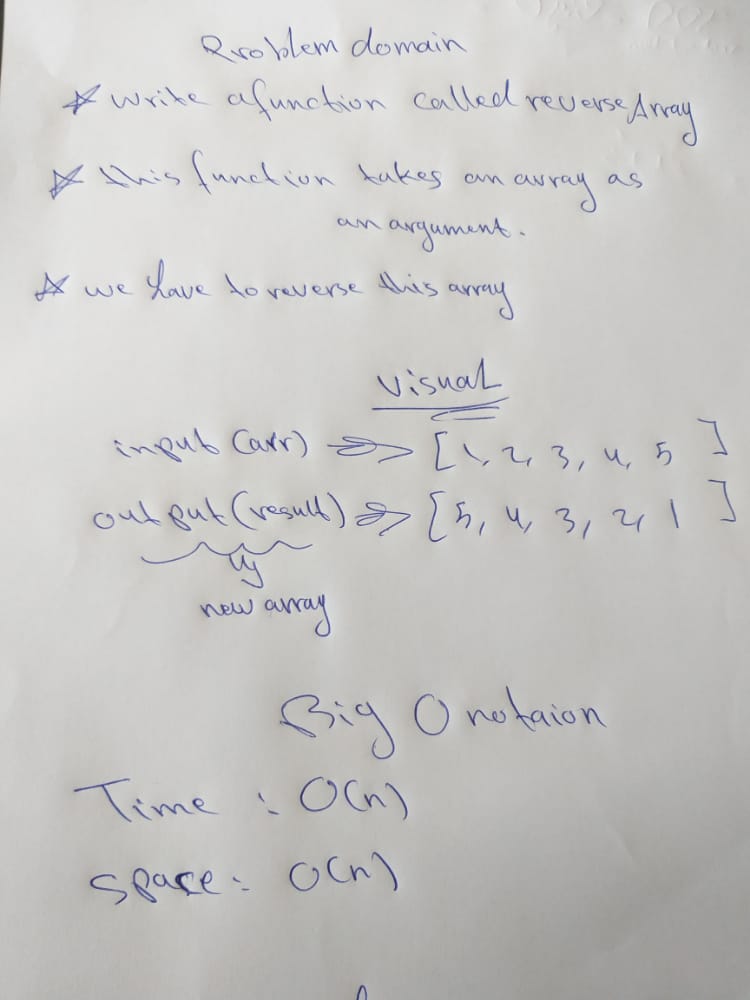 Problem domain
* write a function called reverseArray
* this function takes an array as
an argument.
* we have to reverse this array
Visual
input (arr) => [1, 2, 3, 4, 5]
output (result) => [5, 4, 3, 2, 1]
new array
Big O notaion
Time : O(n)
Space : O(n)